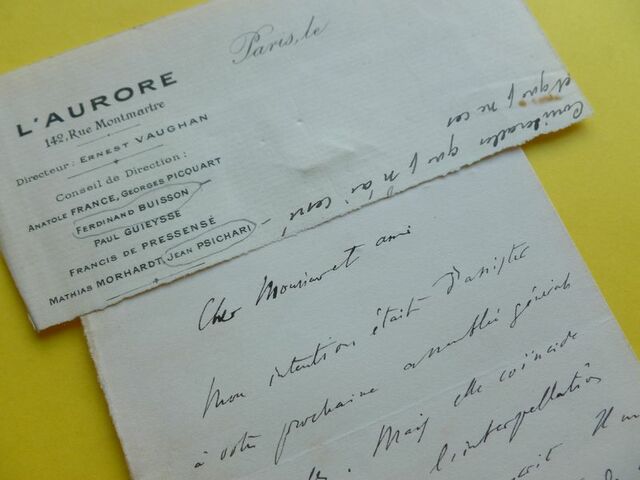 Paris, le
L'AURORE
142, Rue Montmartre
Directeur : ERNEST VAUGHAN
Conseil de Direction :
ANATOLE FRANCE, GEORGES PICQUART
FERDINAND BUISSON
PAUL GUIEYSSE
FRANCIS DE PRESSENSÉ
MATHIAS MORHARDT, JEAN PSICHARI
et que je ne
que je n'ai
Cher Monsieur et ami
Mon intention était d'assister
à votre prochaine assemblée générale
Mais elle coïncide
l'interpellation
Il